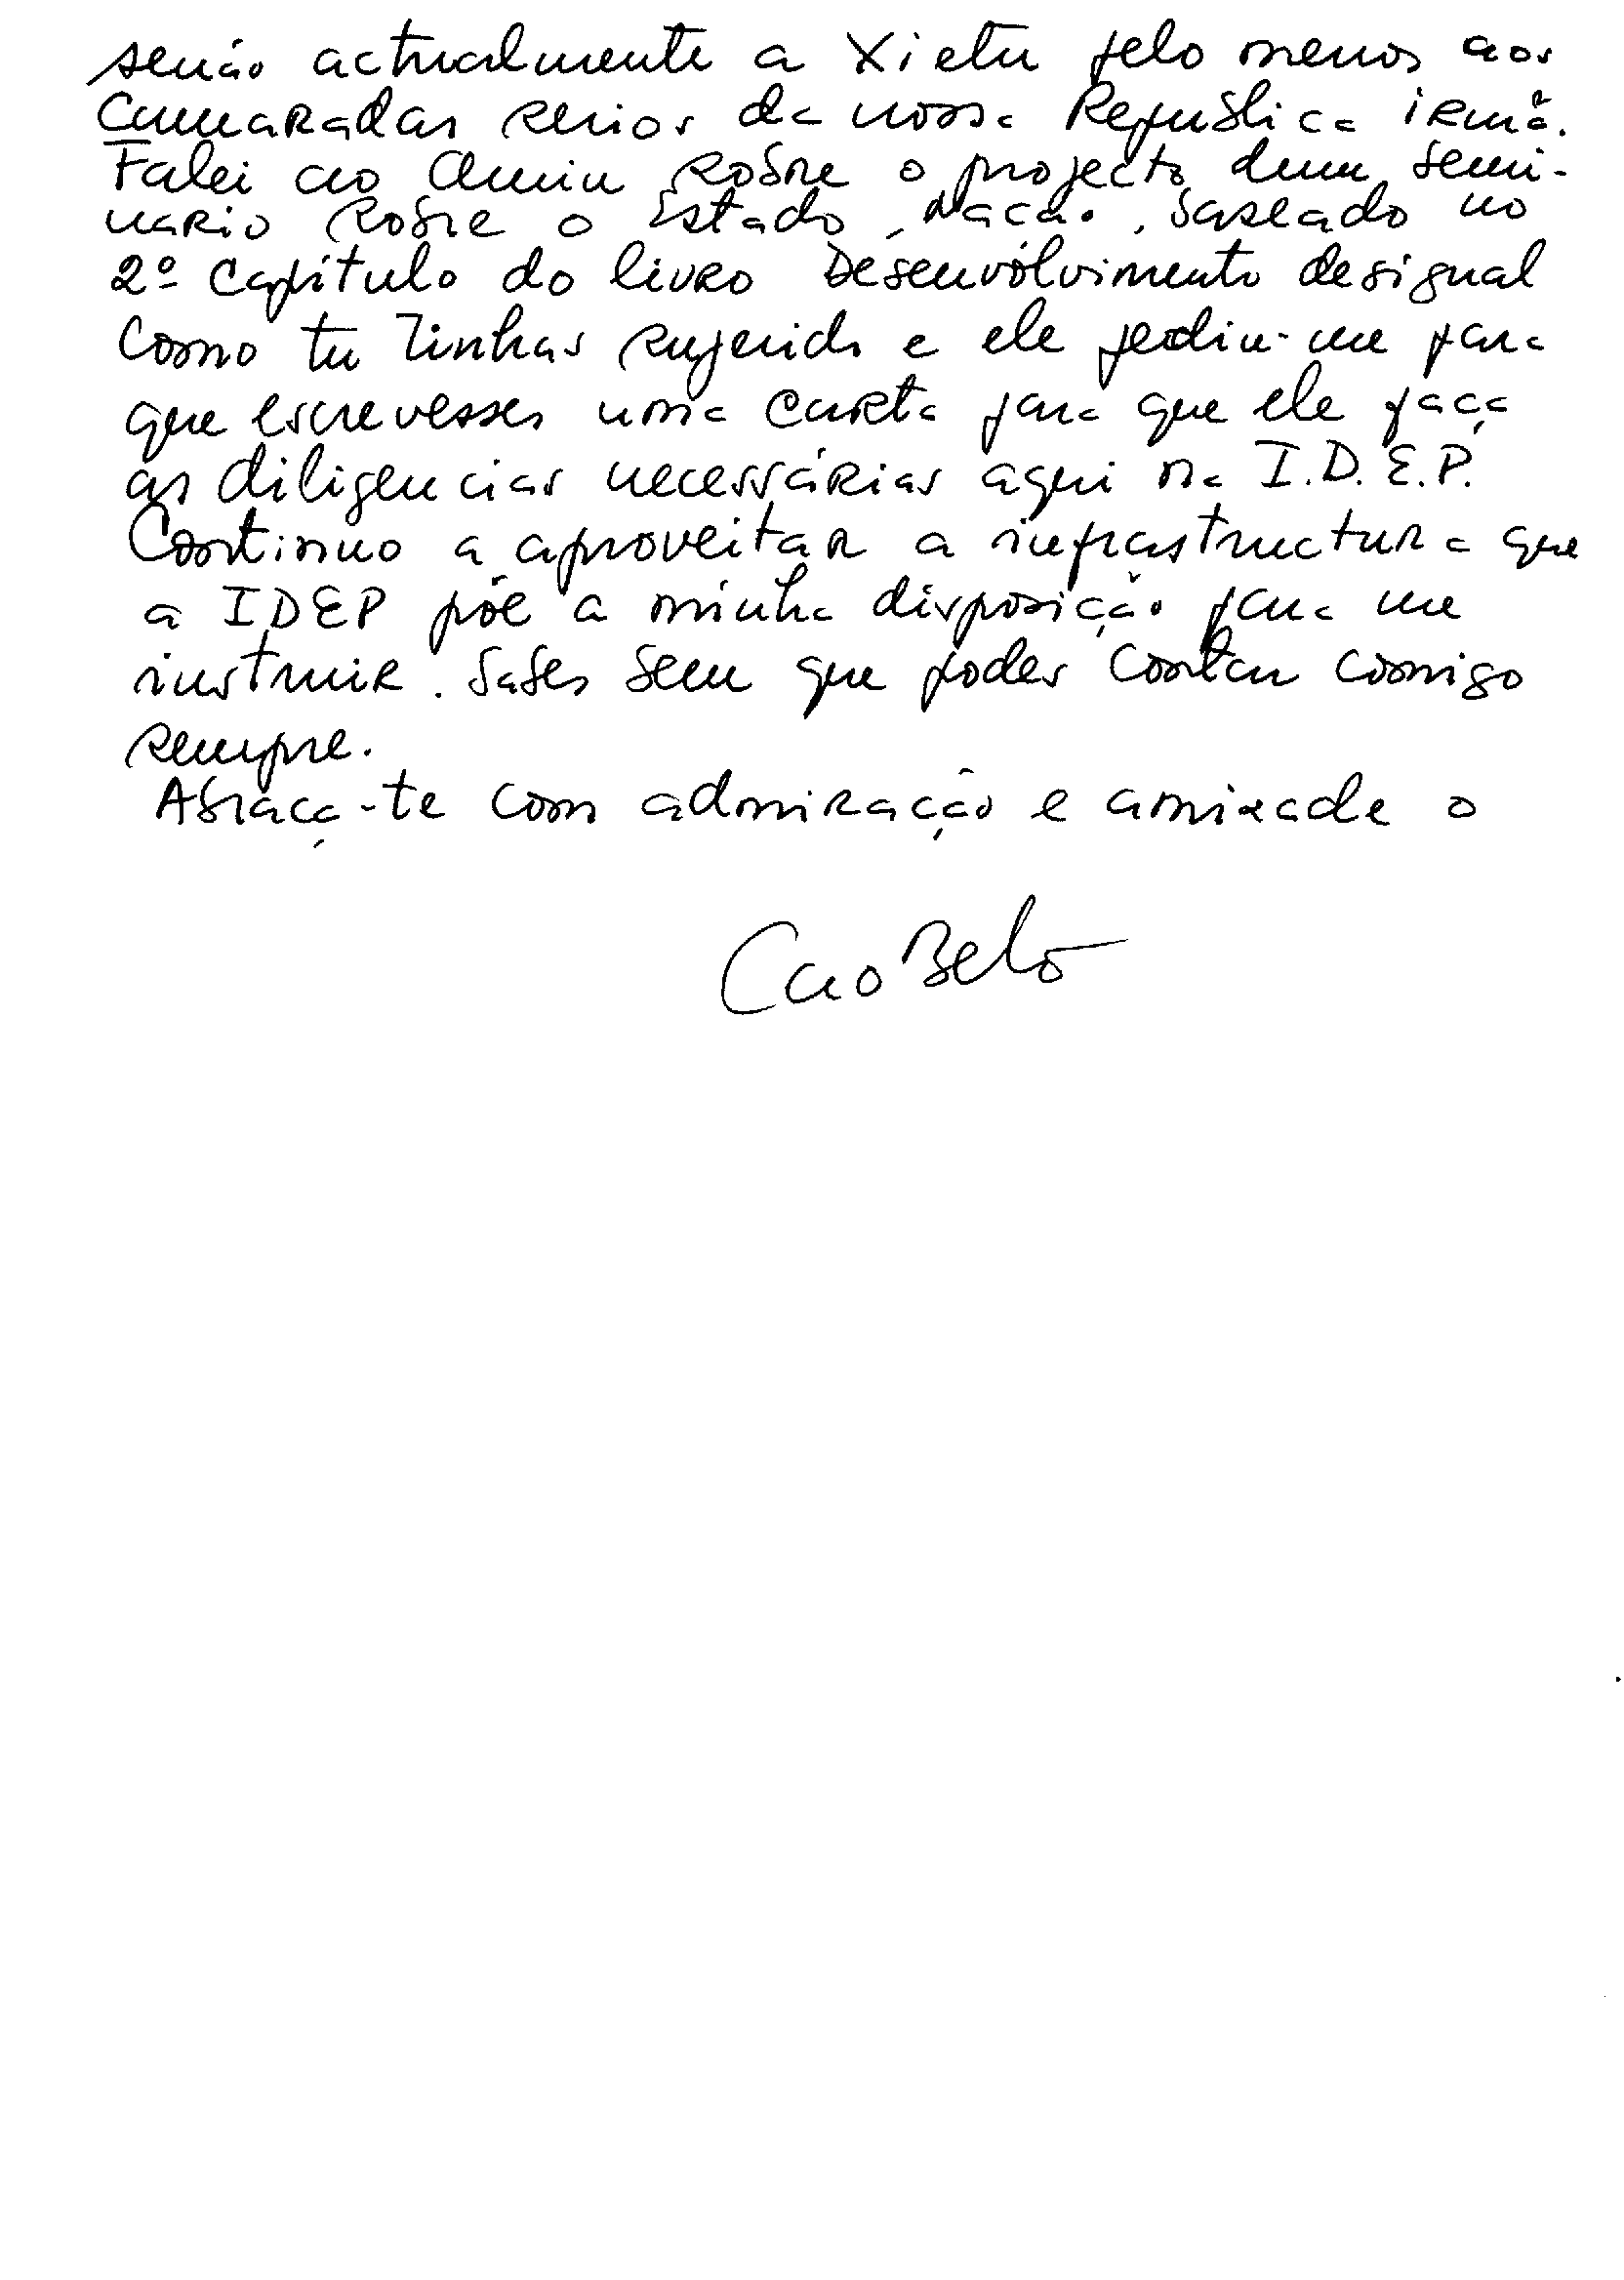 senão actualmente a Xietu pelo menos aos
Camaradas serios da nossa República irmã.
Falei ao Amin sobre o projecto dum semi-
nario sobre o Estado, Nacão, baseado no
2º Capítulo do livro Desenvólvimento desigual
como tu tinhas sugerido e ele pediu-me para
que escrevesses uma carta para que ele faça
as diligencias necessárias aqui na I.D.E.P.
Continuo a aproveitar a infrastructura que
a IDEP põe a minha disposição para me
instruir. Sabes bem que podes contar comigo
sempre.
Abraça-te com admiração e amizade o
Caobelo